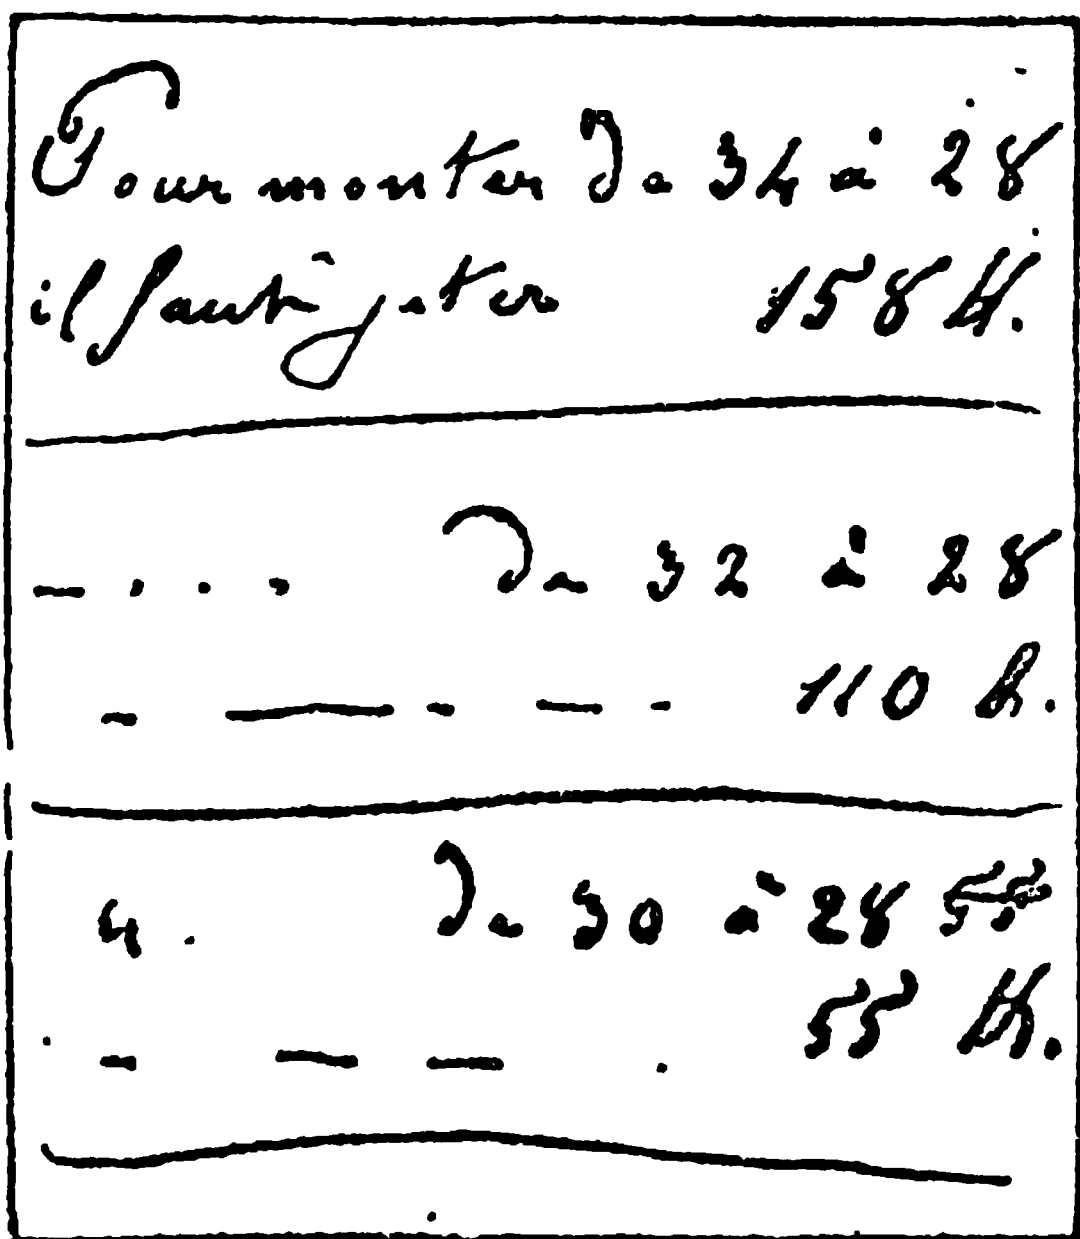 Pour monter de 34 à 28
il faut jeter 158 K.
— . . . de 32 à 28
- — - — - 110 k.
4. de 30 à 28 55
. - — — . 55 K.